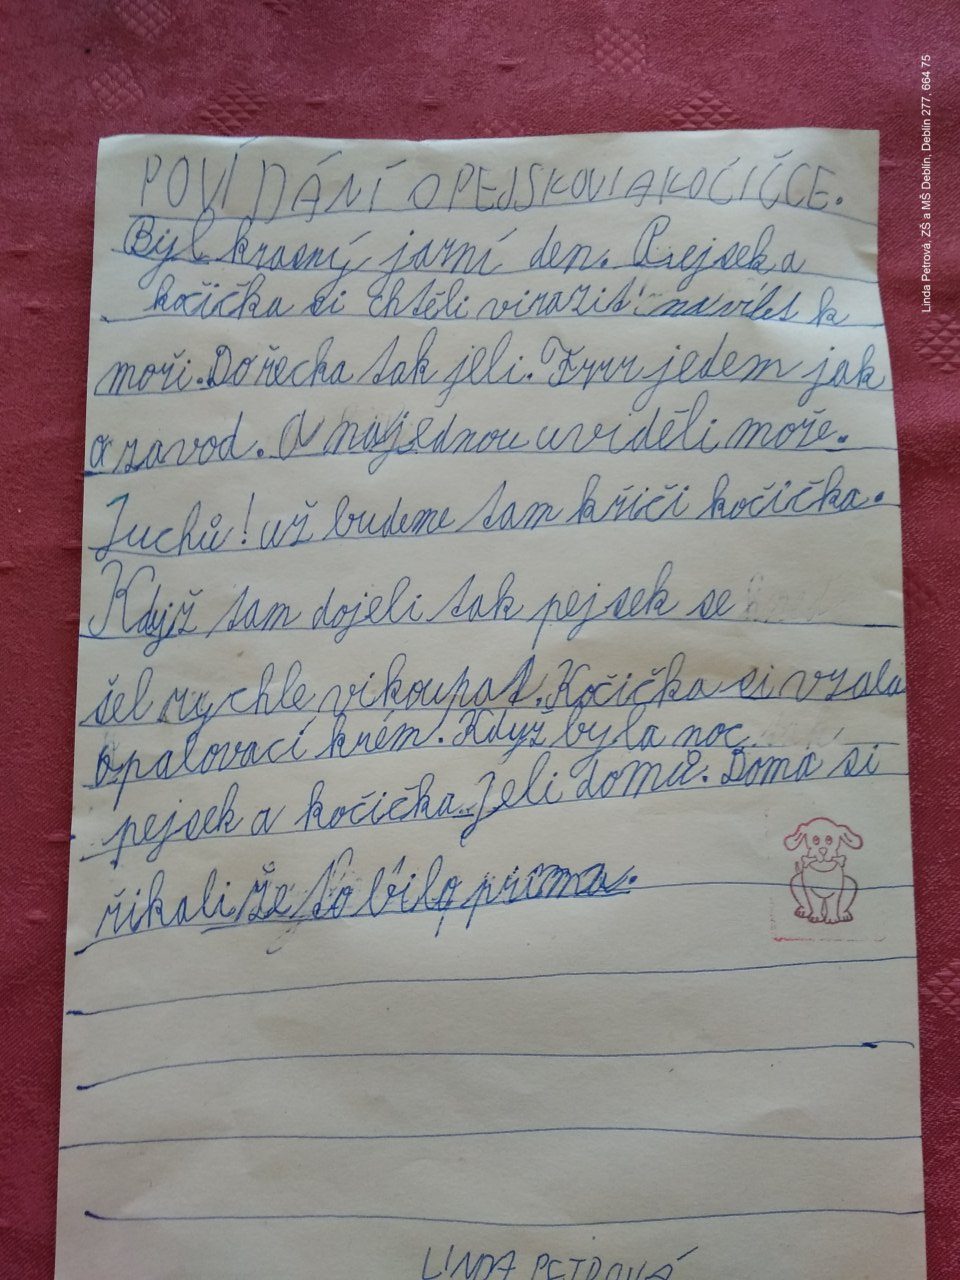 POVÍDÁNÍ O PEJSKOVI A KOČIČCE.
Byl krasný jarní den. Pejsek a
kočička si chtěli virazit na vílet k
moři. Do řecka tak jeli. Frrr jedem jak
o zavod. A najednou uviděli moře.
Juchů! už budeme tam křičí kočička.
Když tam dojeli tak pejsek se
šel rychle vikoupat. Kočička si vzala
opalovací krém. Když byla noc
pejsek a kočička jeli domů. Doma si
řikali že to bilo prima.
LINDA PETROVÁ
Linda Petrová, ZŠ a MŠ Deblín, Deblín 277, 664 75